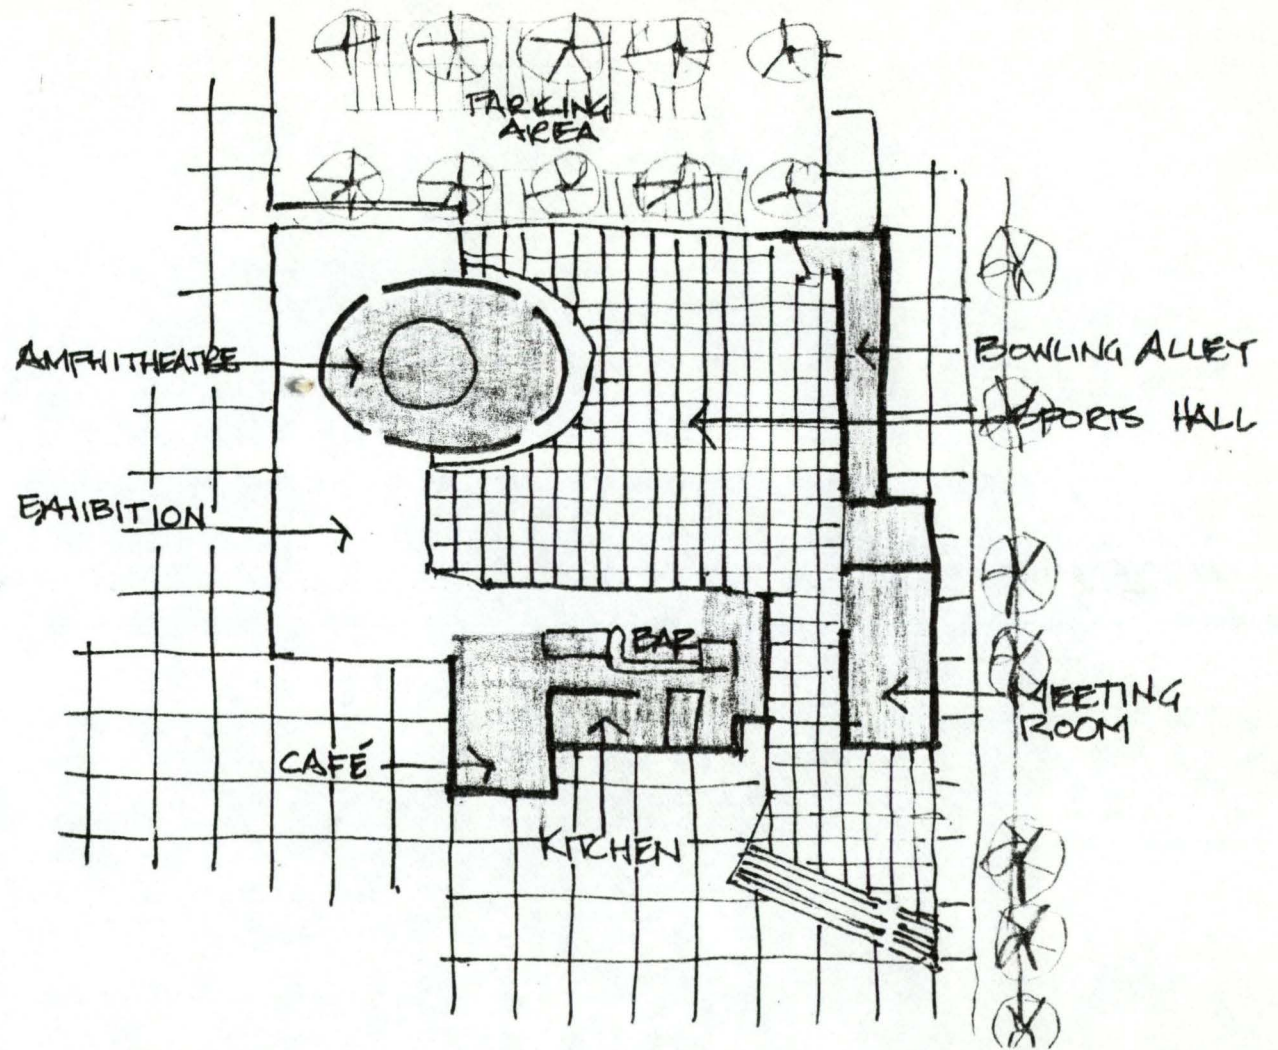 PARKING
AREA
AMPHITHEATRE
BOWLING ALLEY
SPORTS HALL
EXHIBITION
BAR
MEETING
ROOM
CAFÉ
KITCHEN